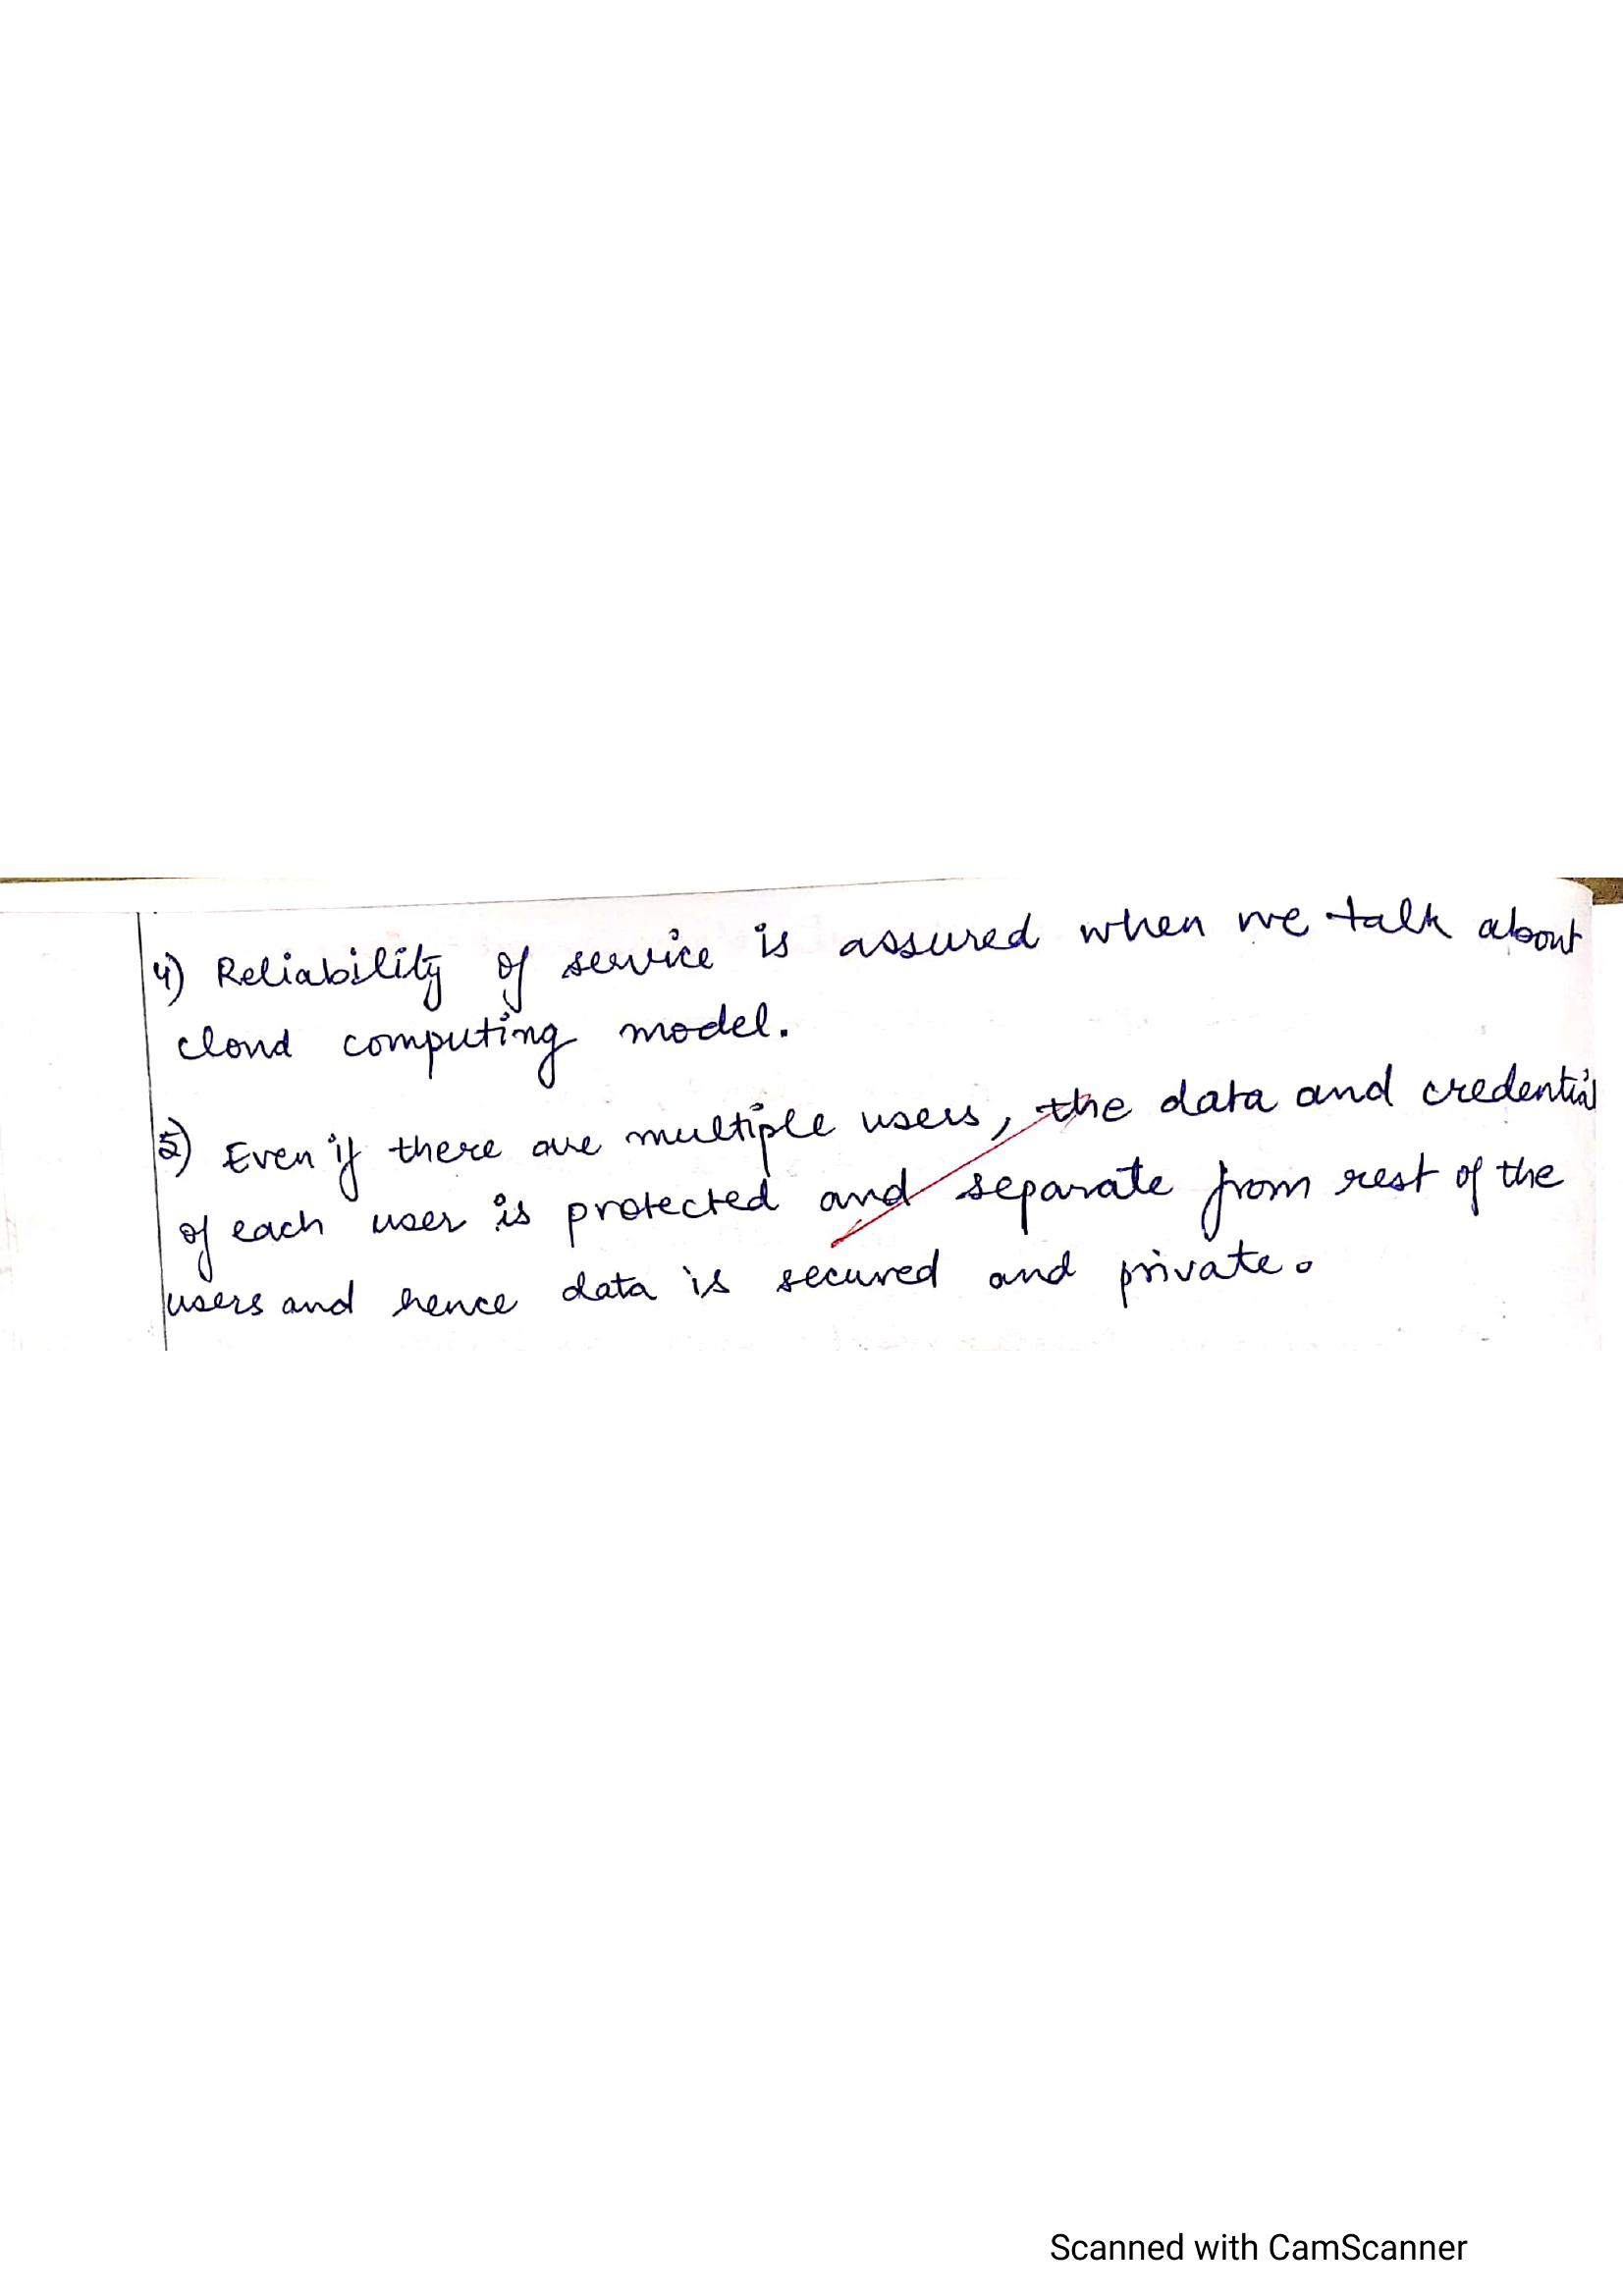 4) Reliability of service is assured when we talk about
cloud computing model.
5) Even if there are multiple users, the data and credential
of each user is protected and separate from rest of the
users and hence data is secured and private.
Scanned with CamScanner